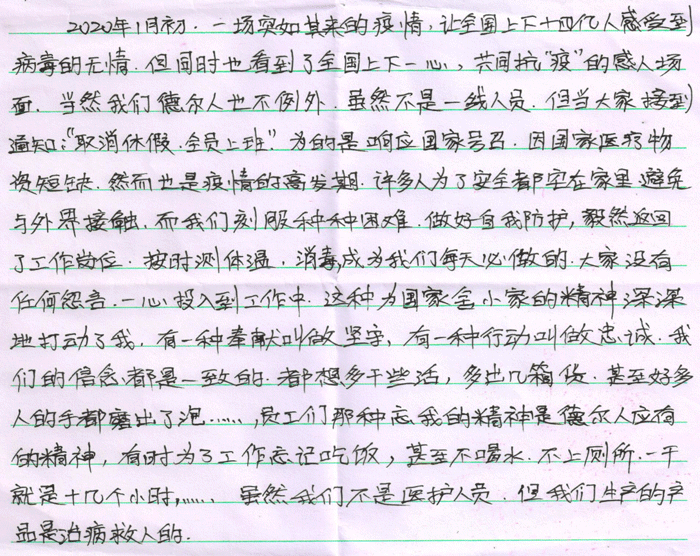 2020年1月初.一场突如其来的疫情,让全国上下十四亿人感受到
病毒的无情.但同时也看到了全国上下一心,共同抗“疫”的感人场
面.当然我们德尔人也不例外.虽然不是一线人员.但当大家接到
通知:“取消休假.全员上班.”为的是响应国家号召.因国家医疗物
资短缺.然而也是疫情的高发期.许多人为了安全都宅在家里避免
与外界接触.而我们刻服种种困难.做好自我防护,毅然返回
了工作岗位.按时测体温.消毒成为我们每天必做的.大家没有
任何怨言.一心投入到工作中.这种为国家舍小家的精神深深
地打动了我.有一种奉献叫做坚守,有一种行动叫做忠诚.我
们的信念都是一致的.都想多干些活,多出几箱货.甚至好多
人的手都磨出了泡……,员工们那种忘我的精神是德尔人应有
的精神,有时为了工作忘记吃饭,甚至不喝水.不上厕所.一干
就是十几个小时,……虽然我们不是医护人员.但我们生产的产
品是治病救人的.